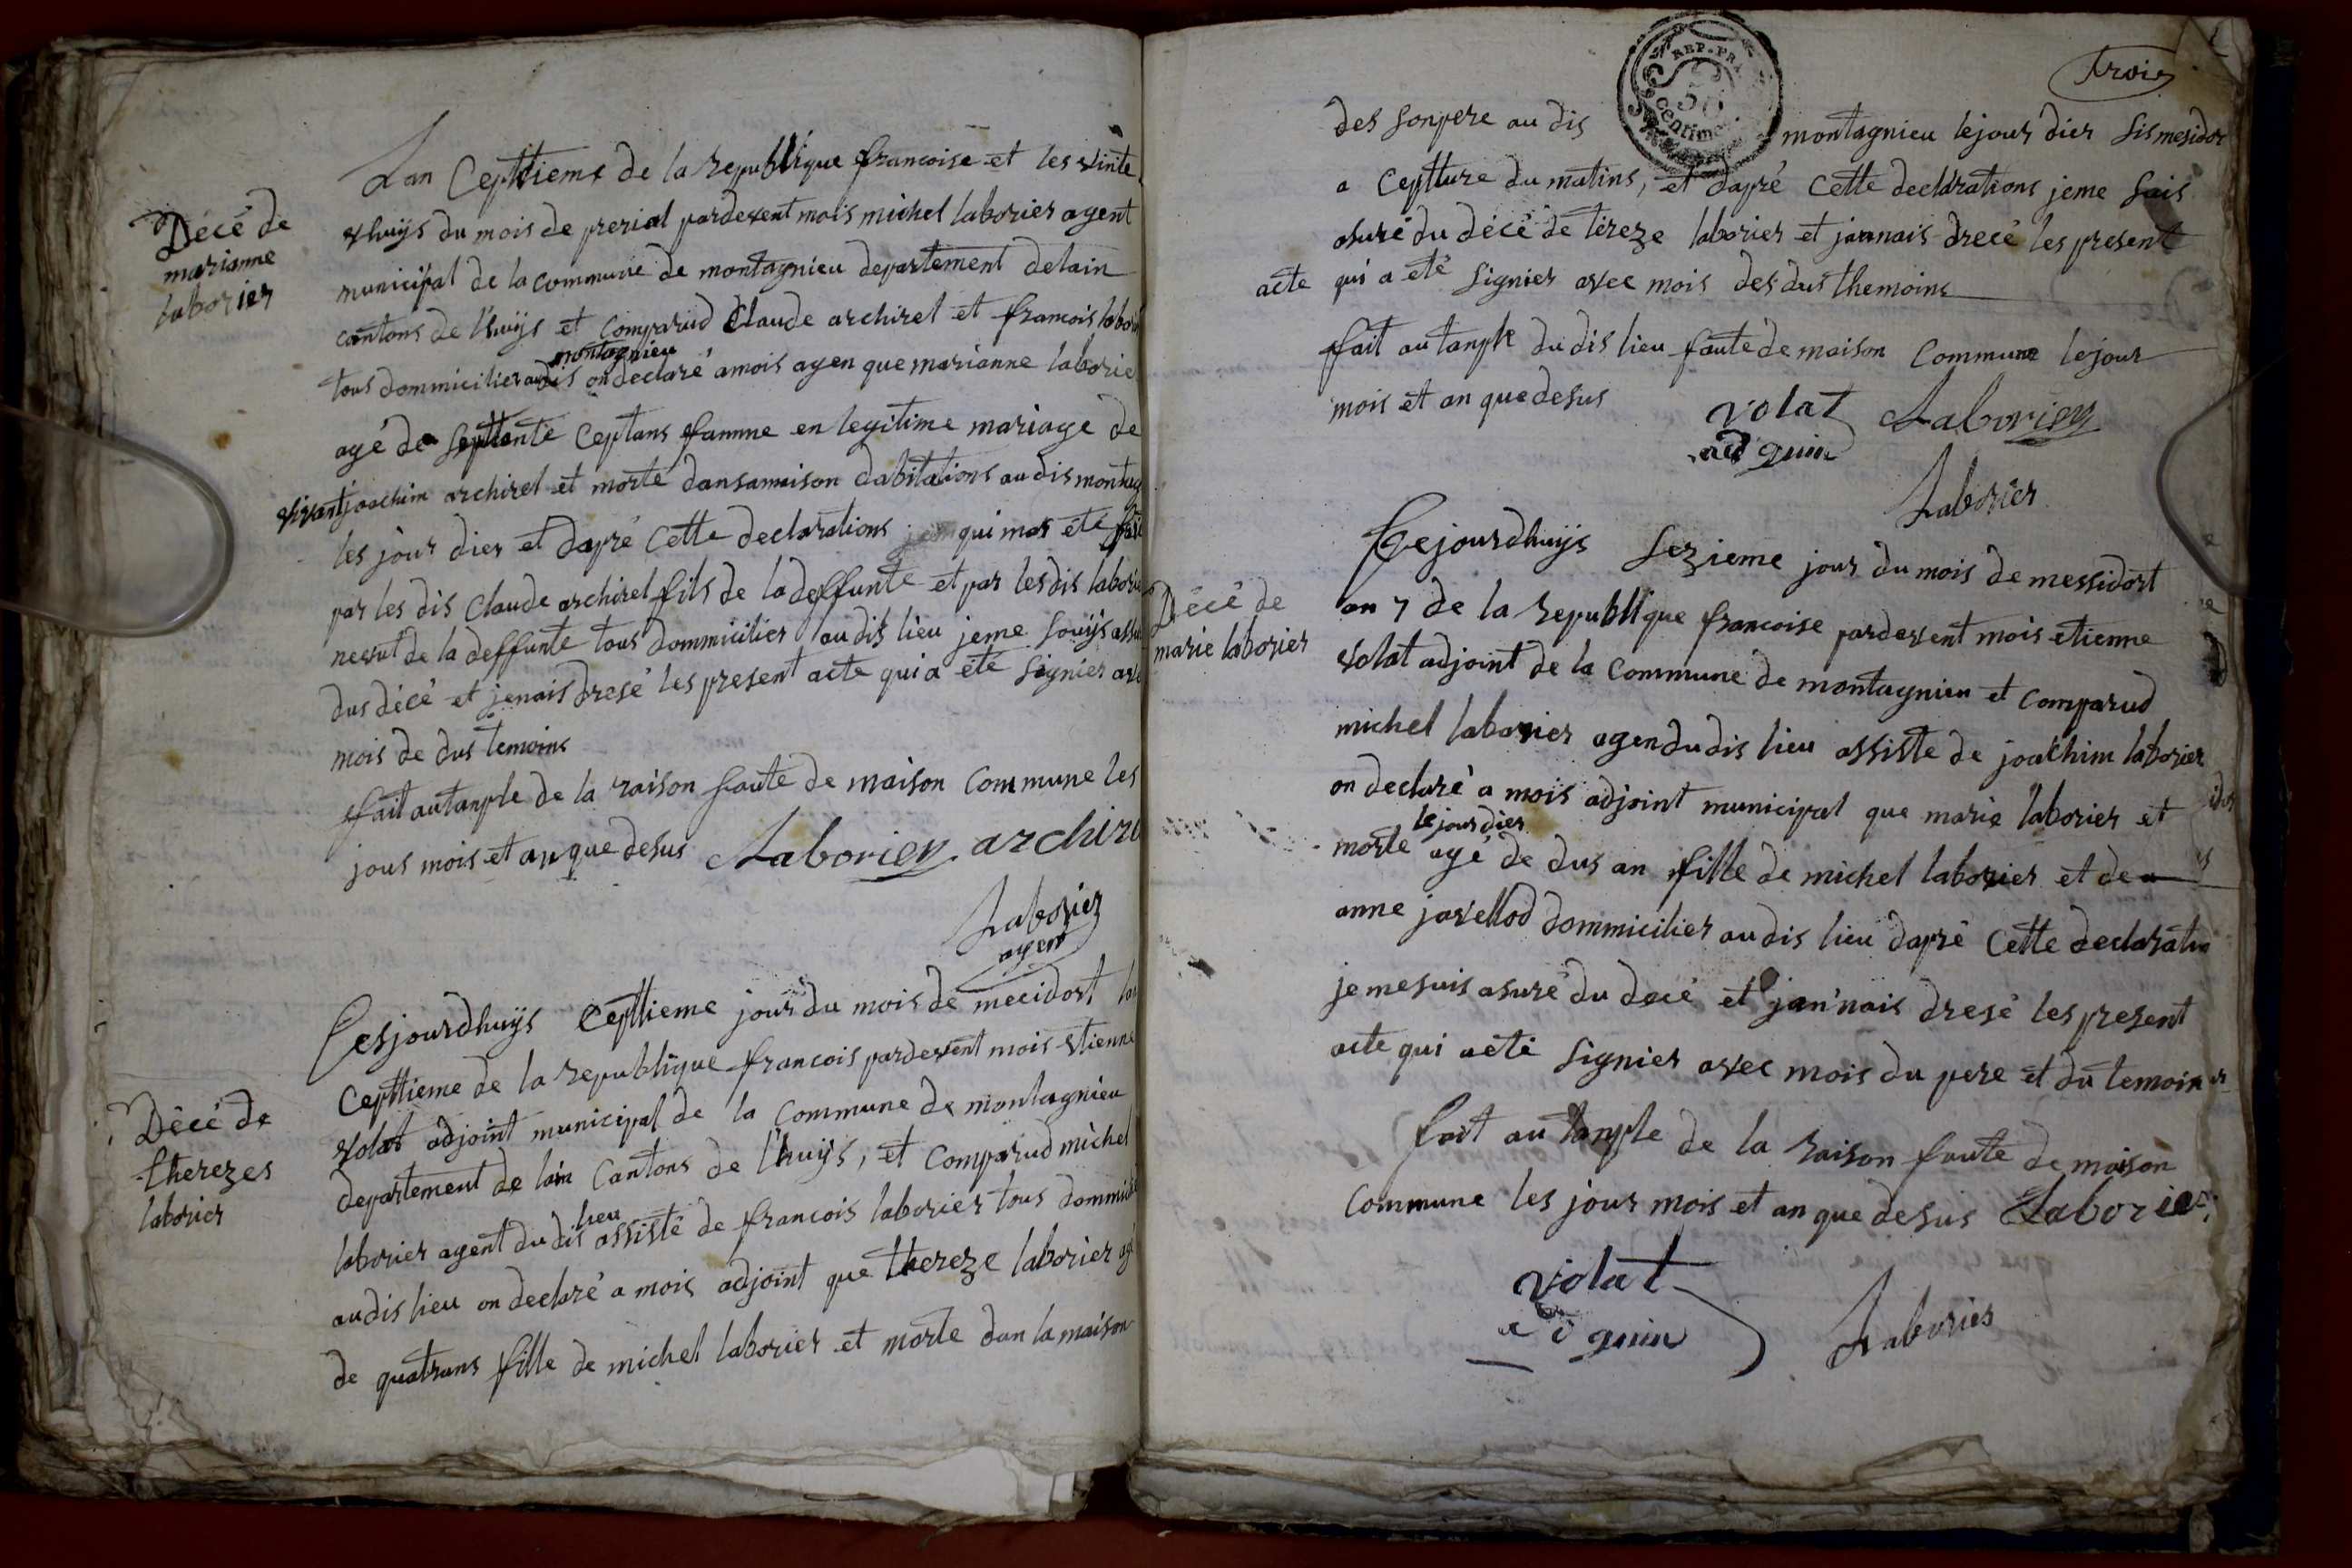 Décé de
marianne
laborier
Lan Cepttieme de la republique francoise et les vinte
vhuijs du mois de prerial pardevent mois michel laborier agent
municipal de la commune de montagnieu departement delain
cantons de lhuijs et Comparud Claude archirel et francois labori
montagnieu
tous dommicilier audis on declaré amois agen que marianne laborie
agé de septtente Ceptans famme en legitime mariage de
vivant joachim archirel et morte dansamaison dabitations au dis montag
les jour dier et dapré Cette declarations qui mas été fait
par les dis Claude archirel fils de la deffunte et par les dis laborie
nevut de la deffunte tous dommicilier au dis lieu jeme souijs assu
dus décé et jenais dresé les present acte qui a été signier ave
mois de dus temoins
fait autanple de la raison faute de maison Commune les
jour mois et an que desus Laborier archire
Laborier
agent
Décé de
therezes
laborier
Cesjourdhuijs Cepttieme jour du mois de mecidort lan
Cepttieme de la republique francois pardevent mois etienne
volat adjoint municipal de la Commune de montagnieu
departement de lain Cantons de lhuijs, et Comparud michel
lieu
laborier agent du dis assisté de francois laborier tous dommicili
audis lieu on declaré a mois adjoint que thereze laborier agé
de quatrans fille de michel laborier et morte dan la maison
REP. FRA.
50
Centimes
trois
des sonpere au dis montagnieu lejour dier sismesidor
a Ceptture du matins, et dapré Cette declarations jeme suis
asuré du décé de tereze laborier et jannais drecé les present
acte qui a été signier avec mois des dus themoins
fait autanple du dis lieu faute de maison Commune lejour
mois et an que desus volat Laborier
adguin
Laborier
Décé de
marie laborier
Cejourdhuijs sezieme jour du mois de messidort
an 7 de la republique francoise pardevent mois etienne
volat adjoint de la Commune de montagnieu et Comparud
michel laborier agendudis lieu assiste de joachim laborier
on declaré a mois adjoint municipal que marie laborier et
le jour dier
morte agé de dus an fille de michel laborier et de
anne javellod dommicilier au dis lieu dapré Cette declaration
je mesuis asuré du decé et jan'nais dresé les present
acte qui aeté signier avec mois du pere et du temoin
fait au tanple de la raison faute de maison
Commune les jour mois et an que desus Laborier
volat
adguin Laborier